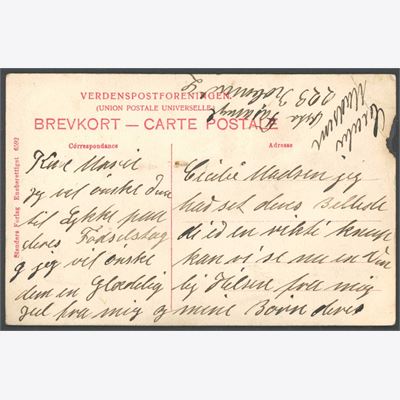 VERDENSPOSTFORENINGEN.
(UNION POSTALE UNIVERSELLE.)
BREVKORT — CARTE POSTALE
Córrespondance
Adresse
Stenders Forlag Eneberettiget 6592
Cecilie
Madsen
223
Kære Marie
jeg vel ønske dem
til Lykke paa
deres Födselstag
og jeg vel ønske
dem en Glædelig
jul fra mig og
Cecilie Madsen jeg
had set deres Billede
di ed en
kan vi se nu en
lig Hilsen fra mig
mine Børn deres